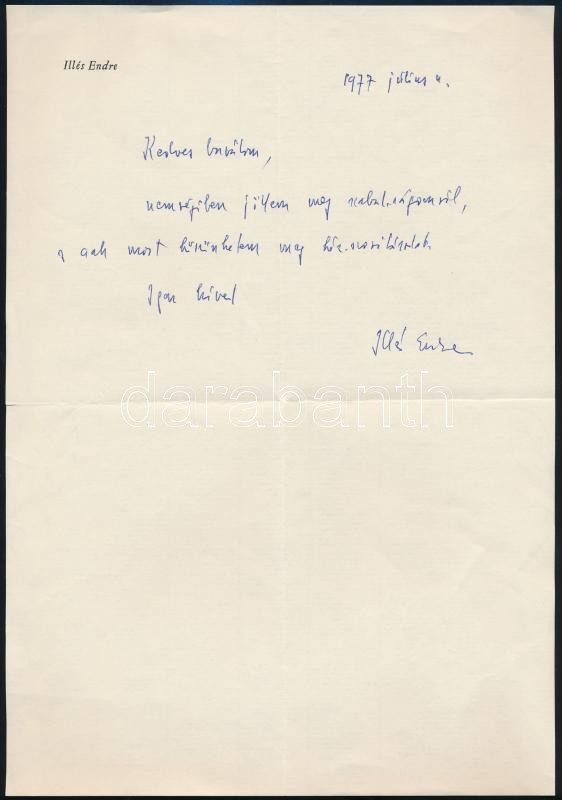 Illés Endre
1977 július 4.
Kedves barátom,
nemrégiben jöttem meg szabadságomról,
s csak most köszönhetem meg
Igaz híved
Illés Endre
darabanth